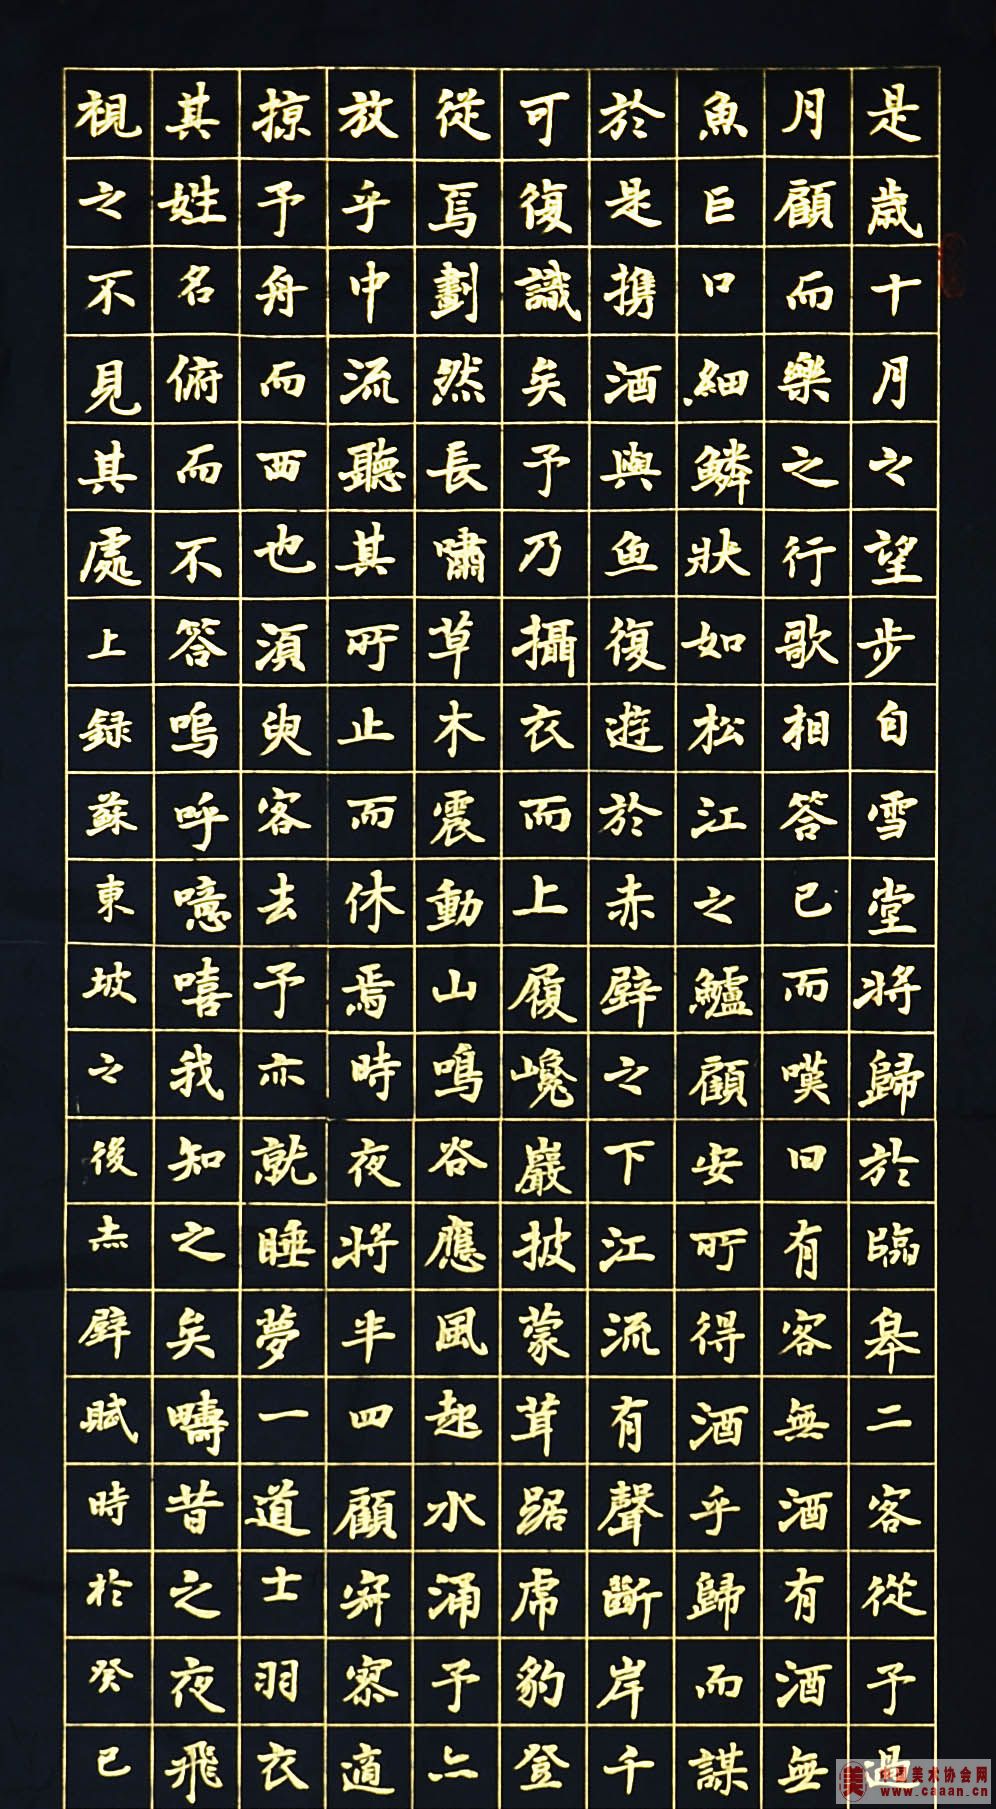 是歲十月之望步自雪堂將歸於臨皋二客從予過
月顧而樂之行歌相答已而嘆曰有客無酒有酒無
魚巨口細鱗狀如松江之鱸顧安所得酒乎歸而謀
於是携酒與鱼復遊於赤壁之下江流有聲斷岸千
可復識矣予乃攝衣而上履巉巖披蒙茸踞虎豹登
從焉劃然長嘯草木震動山鳴谷應風起水涌予亦
放乎中流聽其所止而休焉時夜將半四顧寂寥適
掠予舟而西也須臾客去予亦就睡夢一道士羽衣
其姓名俯而不答嗚呼噫嘻我知之矣疇昔之夜飛
視之不見其處上録蘇東坡之後赤壁賦時於癸巳
美 中国美术协会网
www.caaan.cn